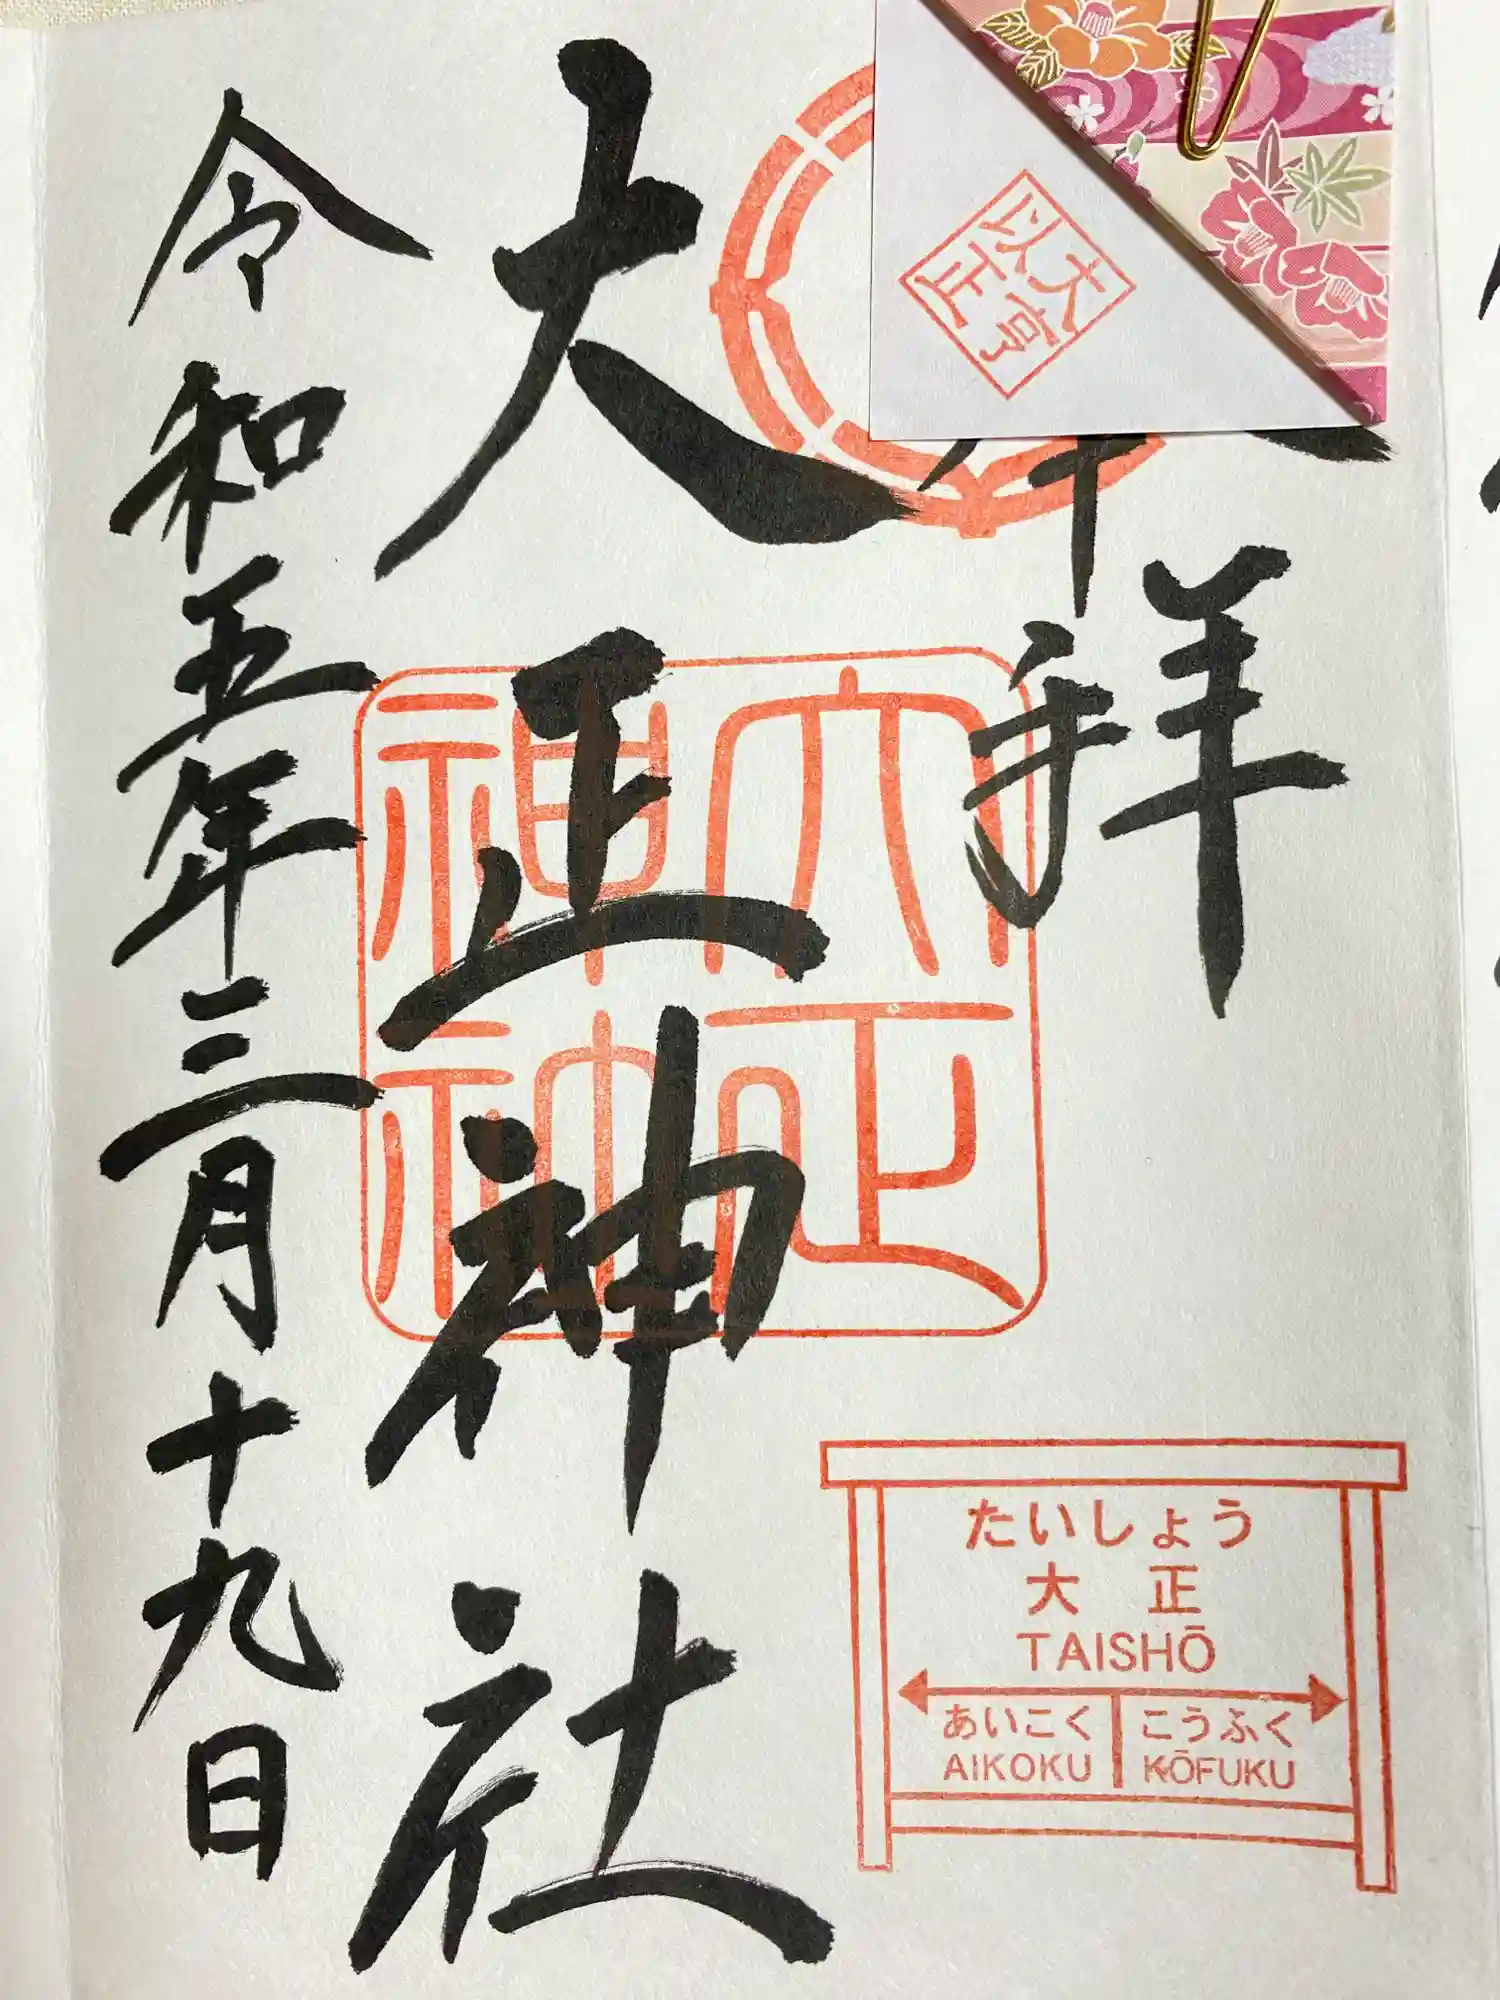 大亨
以正
拝
大正神社
令和五年三月十九日
たいしょう
大 正
TAISHŌ
あいこく こうふく
AIKOKU KŌFUKU